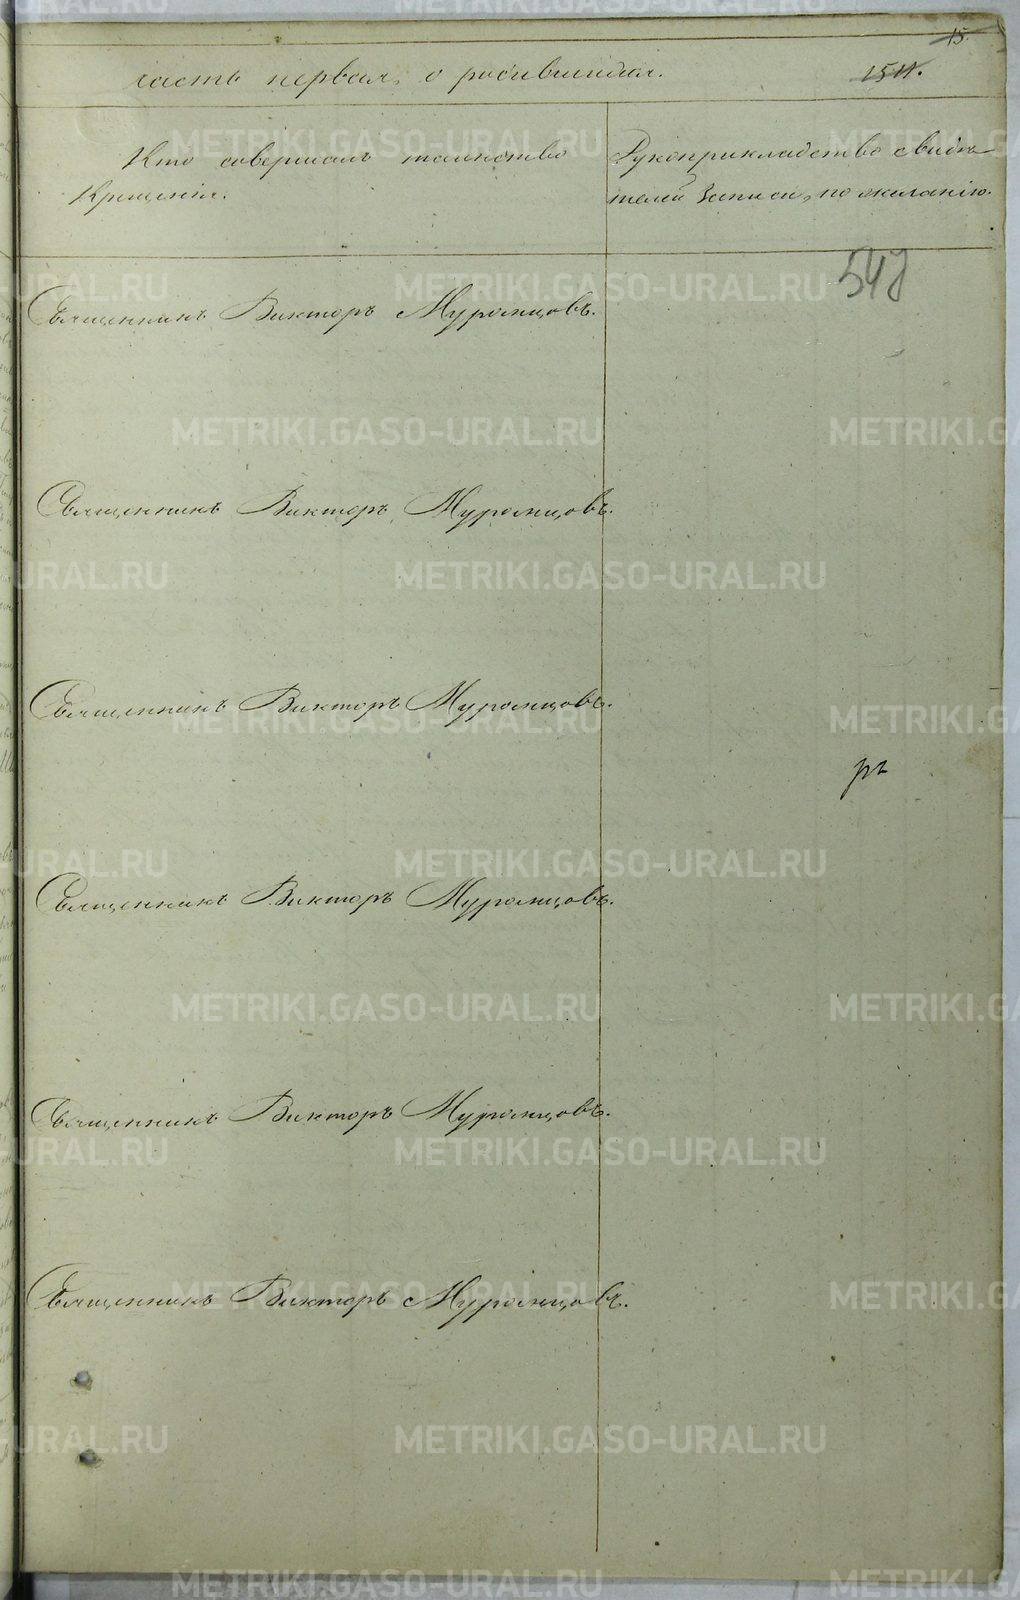 15.
часть первая, о родившихся.
1511.
Кто совершалъ таинство
Крещенія.
Рукоприкладство свидѣ
телей записи, по желанію.
548
Священникъ Викторъ Муромцовъ.
Священникъ Викторъ Муромцовъ.
Священникъ Викторъ Муромцовъ.
Священникъ Викторъ Муромцовъ.
Священникъ Викторъ Муромцовъ.
Священникъ Викторъ Муромцовъ.
METRIKI.GASO-URAL.RU